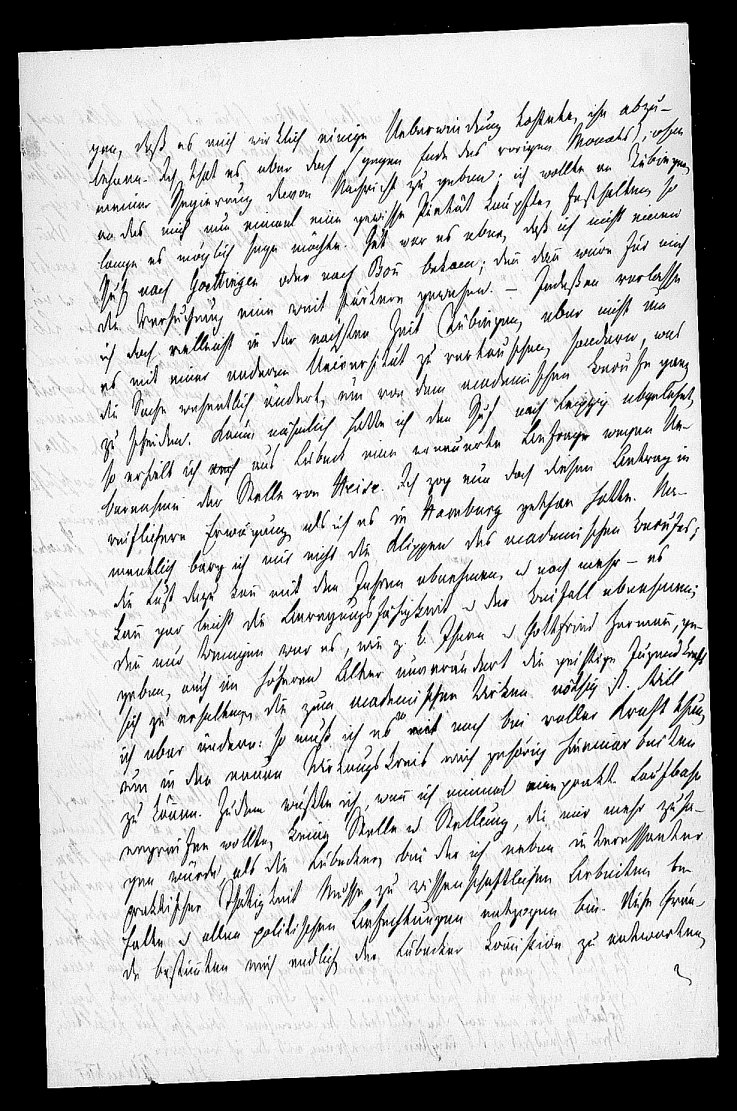 gen, daß es mich wirklich einige Ueberwindung kostete, ihn abzu-
lehnen. Ich that es aber doch (gegen Ende des vorigen Monats), ohne
meiner Regierung davon Nachricht zu geben; ich wollte an Tübingen,
an das mich nun einmal eine gewisse Pietät knüpfte, festhalten, so
lange es möglich seyn möchte. Gut war es aber, daß ich nicht einen
Ruf nach Goettingen oder nach Bonn bekam; denn dann wäre für mich
die Versuchung eine weit stärkere gewesen. – Indeßen verlasse
ich doch vielleicht in der nächsten Zeit Tübingen, aber nicht um
es mit einer anderen Universität zu vertauschen, sondern, was
die Sache wesentlich ändert, um von dem academischen Berufe ganz
zu scheiden. Kaum nähmlich hatte ich den Ruf nach Leipzig abgelehnt,
so erhielt ich aus Lübeck eine erneuerte Anfrage wegen Ue-
bernahme der Stelle von Heise. Ich zog nun doch diesen Antrag in
reiflichere Erwägung, als ich es in Hamburg gethan hatte. Na-
mentlich barg ich mir nicht die Klippen des academischen Berufes;
die Lust dazu kann mit den Jahren abnehmen, u noch mehr – es
kann gar leicht die Anregungsfähigkeit u der Beifall abnehmen;
denn nur Wenigen war es, wie z. B. Ihnen u Gottfried Hermann, ge-
geben, auch im höheren Alter unverändert die geistige Jugendkraft
sich zu erhalten, die zum academischen Wirken nöthig ist. Will
ich aber ändern: so muß ich es noch bei voller Kraft thun,
um in den neuen Wirkungskreis mich gehörig hineinarbeiten
zu können. Zudem wüßte ich, wenn ich einmal eine prakt. Laufbahn
ergreifen wollte, keine Stelle u Stellung, die mir mehr zusa-
gen würde als die Lübecker, bei der ich neben interessanter
praktischer Thätigkeit Muße zu wissenschaftlichen Arbeiten be-
halte u allen politischen Anfechtungen entzogen bin. Diese Grün-
de bestimmten mich endlich, der Lübecker Comission zu antworten,